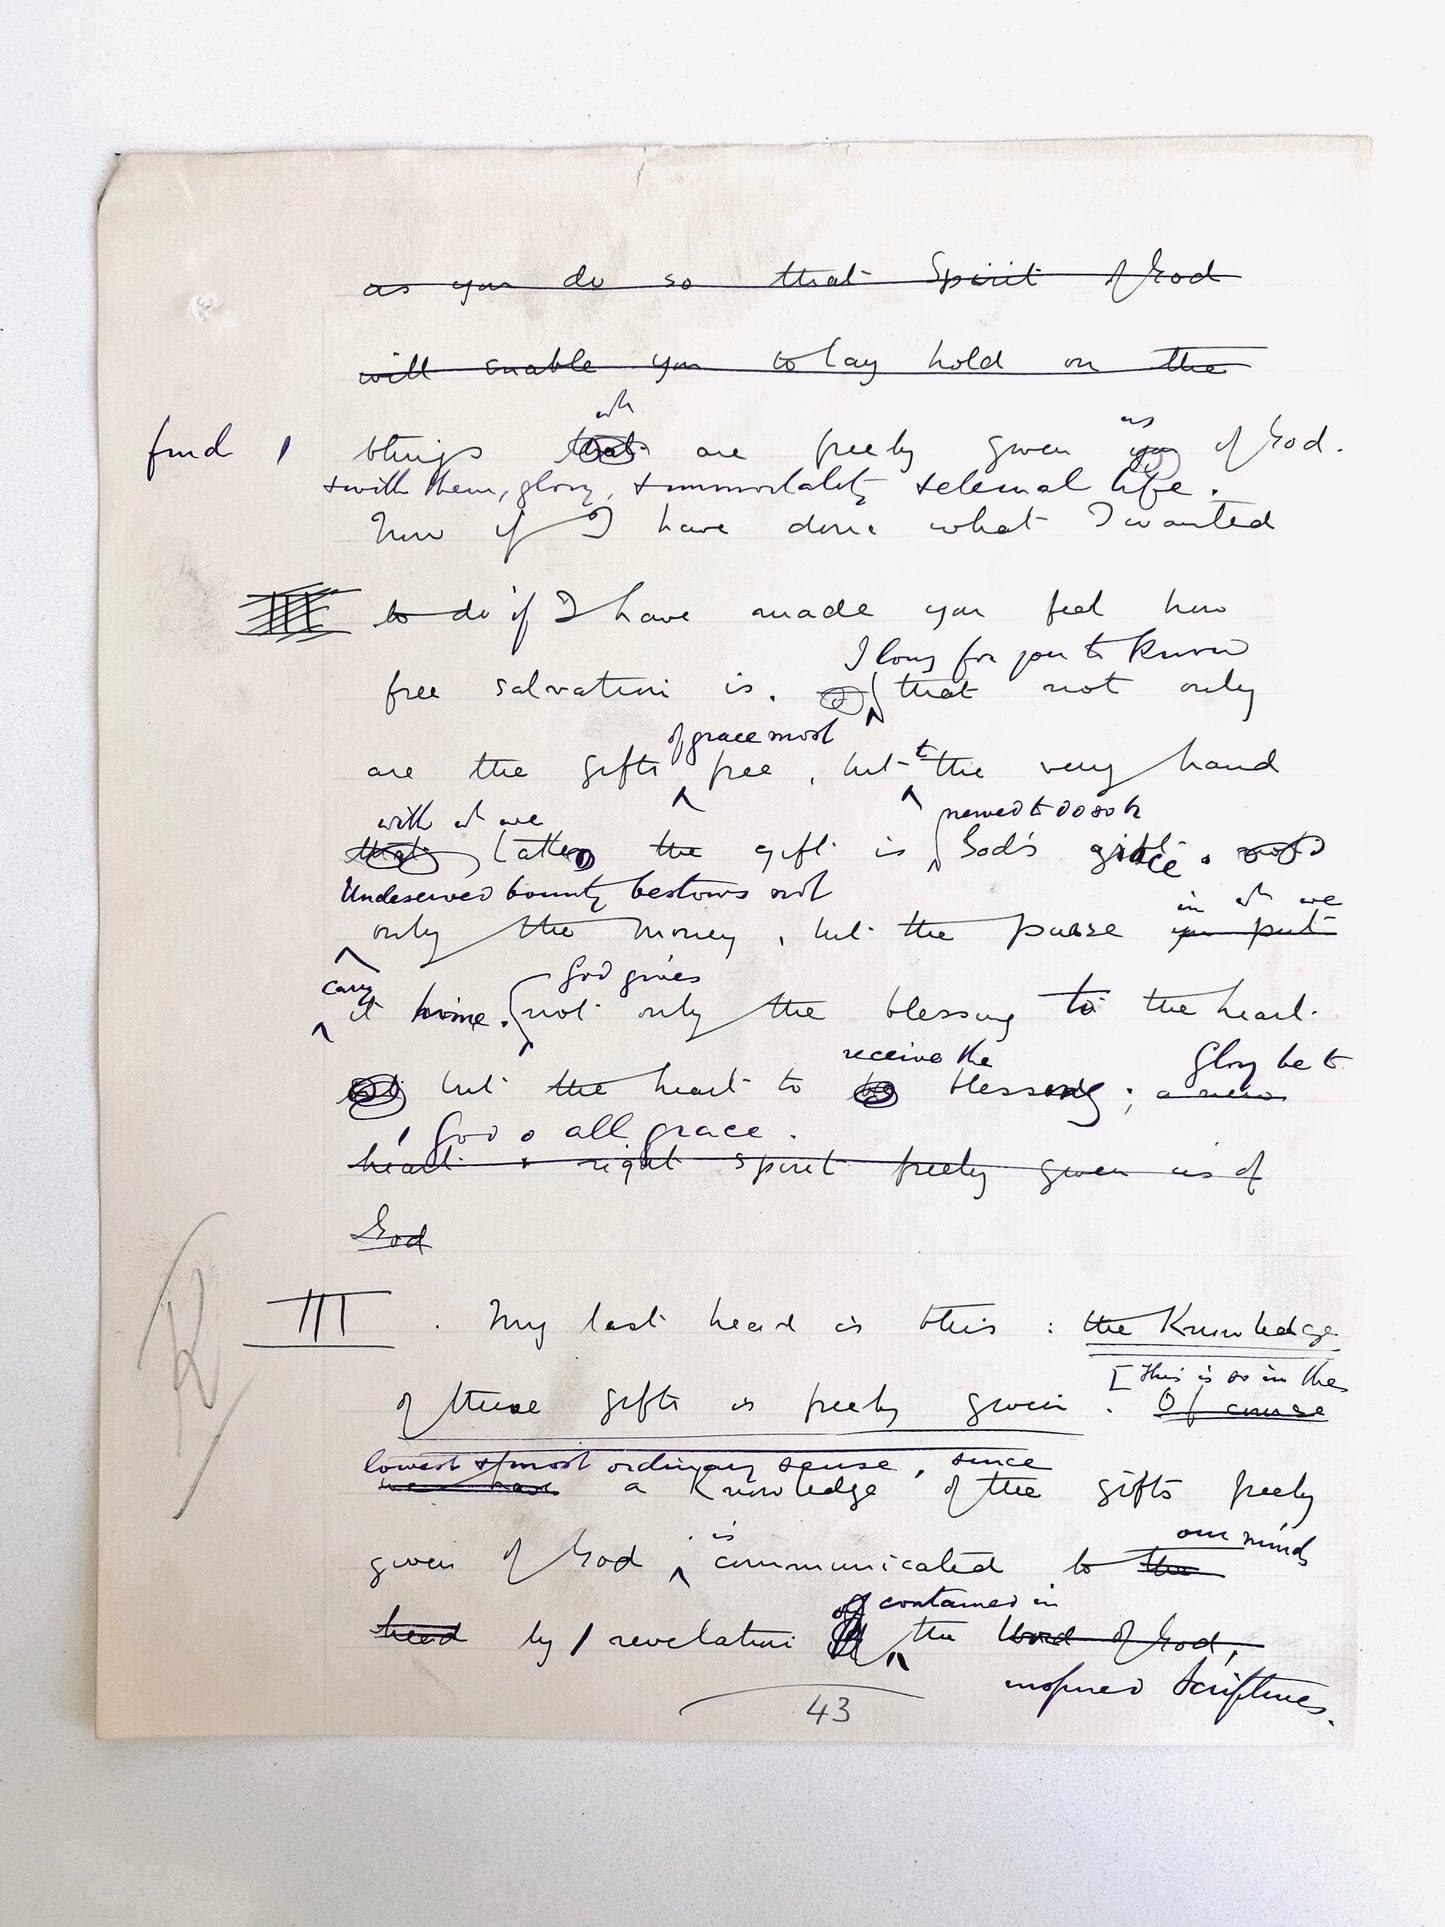 as you do so that Spirit of God
will enable you to lay hold on the
wh us
find things that are freely given you of God.
+ with them, glory, + immortality + eternal life.
Now if I have done what I wanted
III to do if I have made you feel how
I long for you to know
free salvation is. that not only
of grace most
are the gifts free, but the very hand
with wh we moved to do so by
that takes the gift is God's grace. not
Undeserved bounty bestows not in wh we
only the money, but the purse you put
carry God gives
it home. not only the blessing to the heart
receive the Glory be to
but the heart to blessing; a new
God o all grace.
heart + right spirit freely given us of
God
III. My last head is this: the Knowledge
[This is so in the
of these gifts is freely given. Of course
lowest + most ordinary sense, since
we have a Knowledge of the gifts freely
is our minds
given of God communicated to the
contained in
head by revelation of the Word of God,
inspired Scriptures.
43